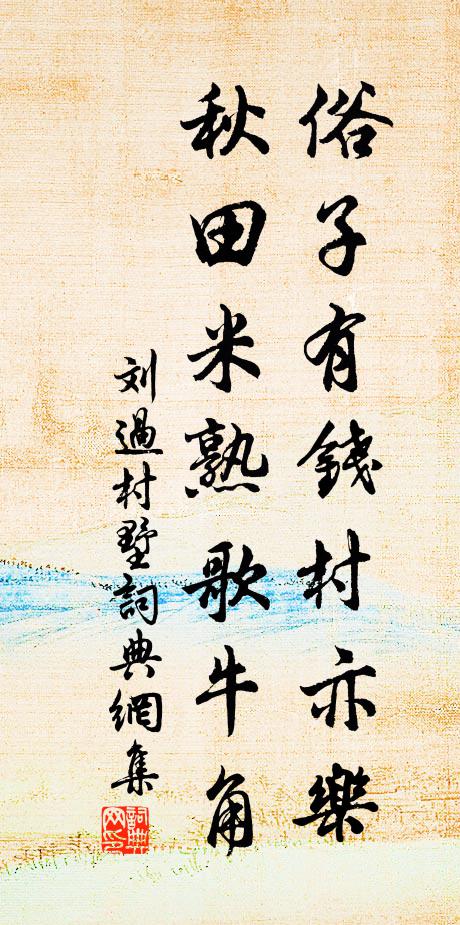 俗子有錢村亦樂
秋田米熟歌牛角
刘過村墅詞典網集
詞典网印